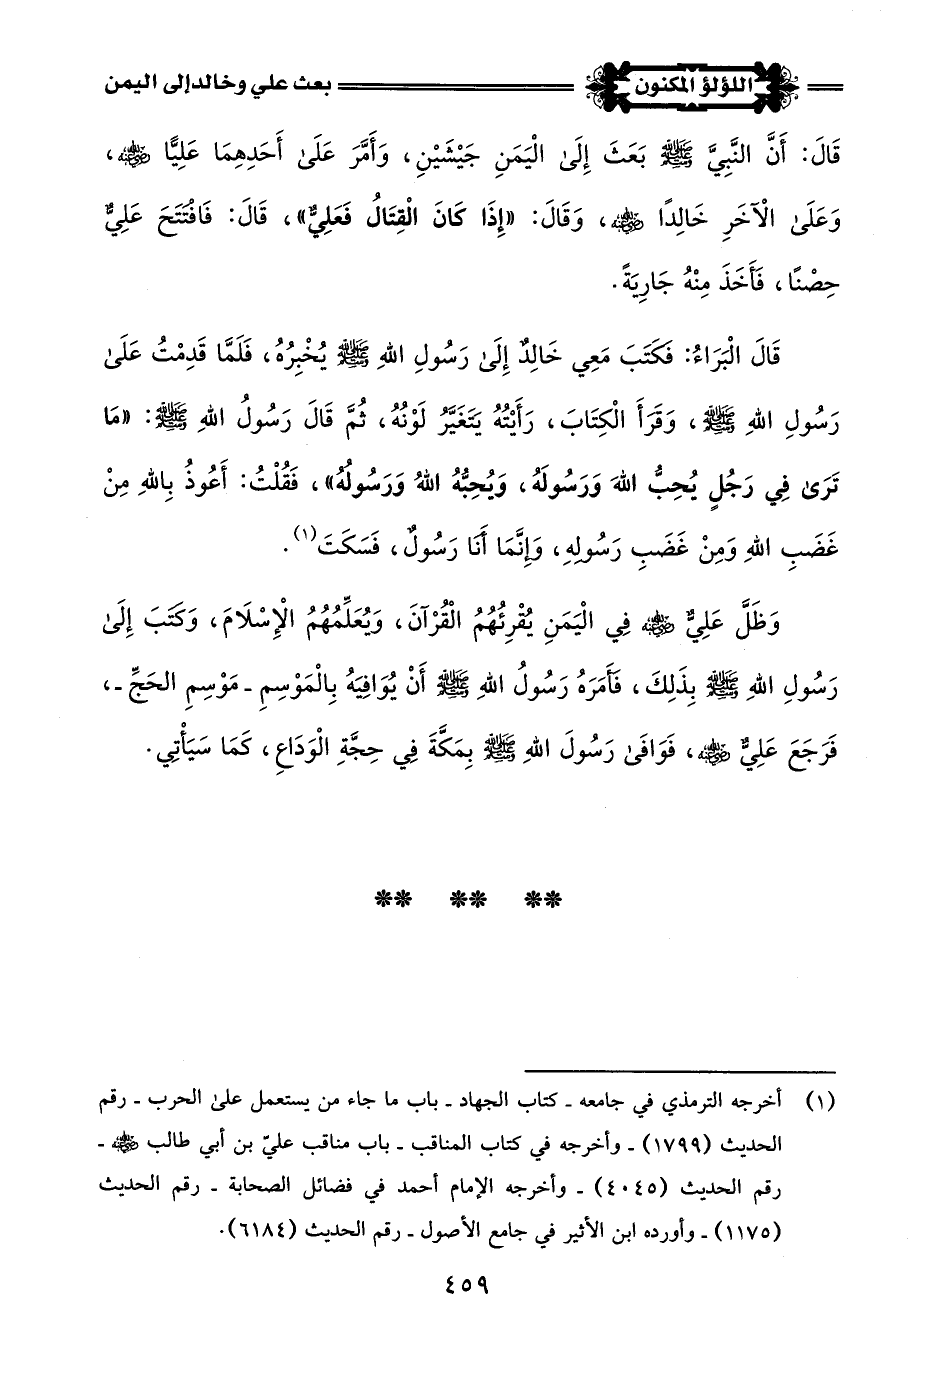 اللؤلؤ المكنون
بعث علي وخالد إلى اليمن
قَالَ: أَنَّ النَّبِيَّ ﷺ بَعَثَ إِلَىٰ الْيَمَنِ جَيْشَيْنِ، وَأَمَّرَ عَلَىٰ أَحَدِهِمَا عَلِيًّا رضي الله عنه،
وَعَلَىٰ الْآخَرِ خَالِدًا رضي الله عنه، وَقَالَ: «إِذَا كَانَ الْقِتَالُ فَعَلِيٌّ»، قَالَ: فَافْتَتَحَ عَلِيٌّ
حِصْنًا، فَأَخَذَ مِنْهُ جَارِيَةً.
قَالَ الْبَرَاءُ: فَكَتَبَ مَعِي خَالِدٌ إِلَىٰ رَسُولِ اللهِ ﷺ يُخْبِرُهُ، فَلَمَّا قَدِمْتُ عَلَىٰ
رَسُولِ اللهِ ﷺ، وَقَرَأَ الْكِتَابَ، رَأَيْتُهُ يَتَغَيَّرُ لَوْنُهُ، ثُمَّ قَالَ رَسُولُ اللهِ ﷺ: «مَا
تَرَىٰ فِي رَجُلٍ يُحِبُّ اللهَ وَرَسُولَهُ، وَيُحِبُّهُ اللهُ وَرَسُولُهُ»، فَقُلْتُ: أَعُوذُ بِاللهِ مِنْ
غَضَبِ اللهِ وَمِنْ غَضَبِ رَسُولِهِ، وَإِنَّمَا أَنَا رَسُولٌ، فَسَكَتَ(١).
وَظَلَّ عَلِيٌّ رضي الله عنه فِي الْيَمَنِ يُقْرِئُهُمُ الْقُرْآنَ، وَيُعَلِّمُهُمُ الْإِسْلَامَ، وَكَتَبَ إِلَىٰ
رَسُولِ اللهِ ﷺ بِذَلِكَ، فَأَمَرَهُ رَسُولُ اللهِ ﷺ أَنْ يُوَافِيَهُ بِالْمَوْسِمِ ـ مَوْسِمِ الحَجِّ ـ،
فَرَجَعَ عَلِيٌّ رضي الله عنه، فَوَافَىٰ رَسُولَ اللهِ ﷺ بِمَكَّةَ فِي حِجَّةِ الْوَدَاعِ، كَمَا سَيَأْتِي.
(١) أخرجه الترمذي في جامعه ـ كتاب الجهاد ـ باب ما جاء من يستعمل علىٰ الحرب ـ رقم
الحديث (١٧٩٩) ـ وأخرجه في كتاب المناقب ـ باب مناقب عليّ بن أبي طالب رضي الله عنه ـ
رقم الحديث (٤٠٤٥) ـ وأخرجه الإمام أحمد في فضائل الصحابة ـ رقم الحديث
(١١٧٥) ـ وأورده ابن الأثير في جامع الأصول ـ رقم الحديث (٦١٨٤).
٤٥٩